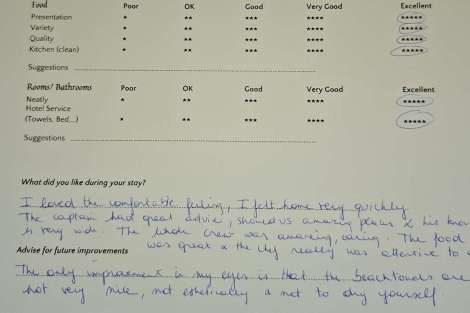 Food Poor OK Good Very Good Excellent
Presentation * ** *** **** *****
Variety * ** *** **** *****
Quality * ** *** **** *****
Kitchen (clean) * ** *** **** *****
Suggestions
Rooms / Bathrooms Poor OK Good Very Good Excellent
Neatly * ** *** **** *****
Hotel Service
(Towels, Bed...) * ** *** **** *****
Suggestions
What did you like during your stay?
I loved the comfortable feeling, I felt home very quickly.
The captain had great advice, showed us amazing places & his know
is very wide. The whole crew was amazing, caring. The food
was great & the chef really was attentive to
Advise for future improvements
The only improvement in my eyes is that the beachtowels are
not very nice, not esthetically & not to dry yourself.